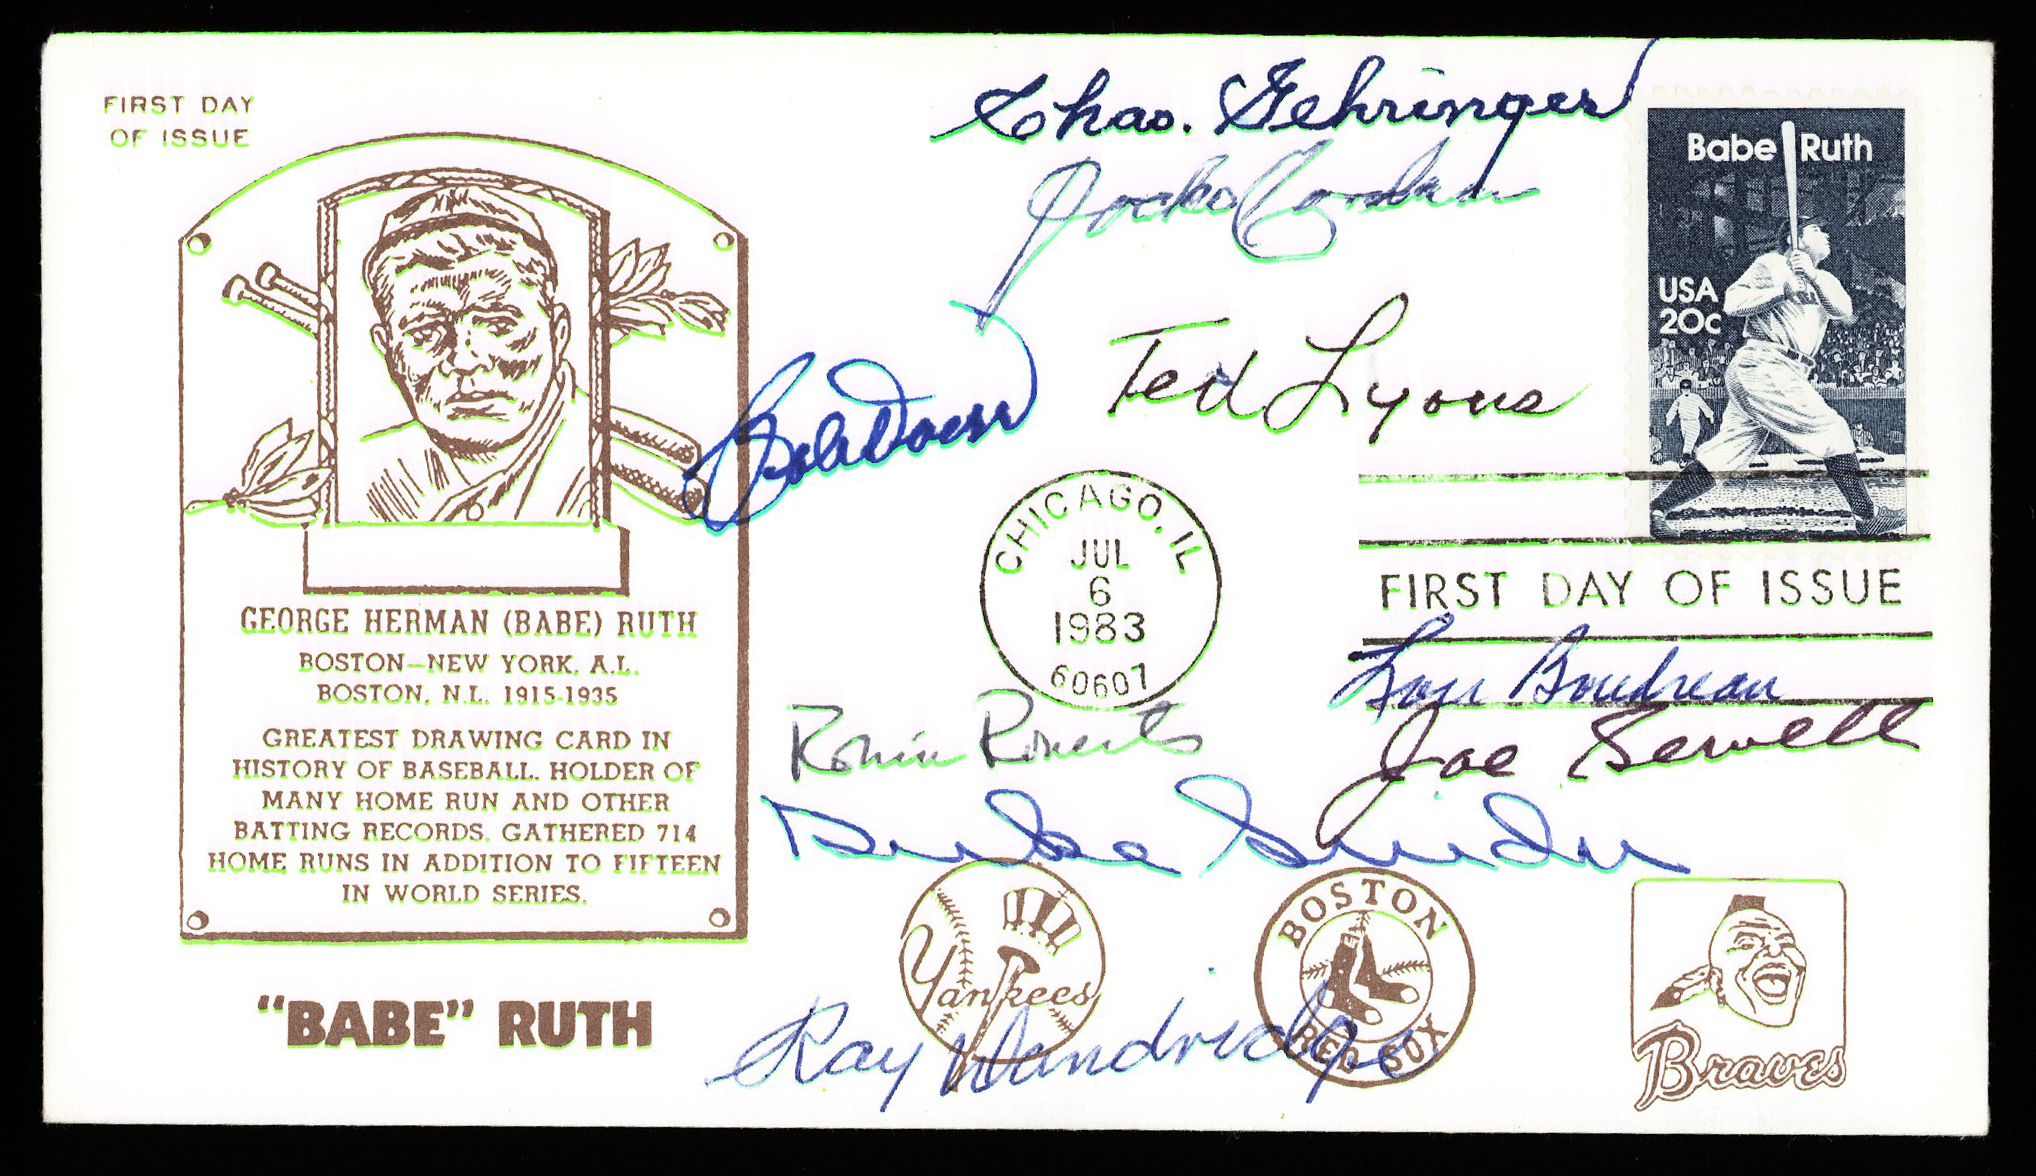 FIRST DAY
OF ISSUE
Chas. Gehringer
Jocko Conlan
Ted Lyons
Bob Doerr
Babe Ruth
USA
20c
CHICAGO, IL
JUL
6
1983
60607
FIRST DAY OF ISSUE
Lou Boudreau
Joe Sewell
Robin Roberts
Duke Snider
Ray Dandridge
GEORGE HERMAN (BABE) RUTH
BOSTON—NEW YORK, A.L.
BOSTON, N.L. 1915-1935
GREATEST DRAWING CARD IN
HISTORY OF BASEBALL. HOLDER OF
MANY HOME RUN AND OTHER
BATTING RECORDS. GATHERED 714
HOME RUNS IN ADDITION TO FIFTEEN
IN WORLD SERIES.
"BABE" RUTH
Yankees
BOSTON
RED SOX
Braves